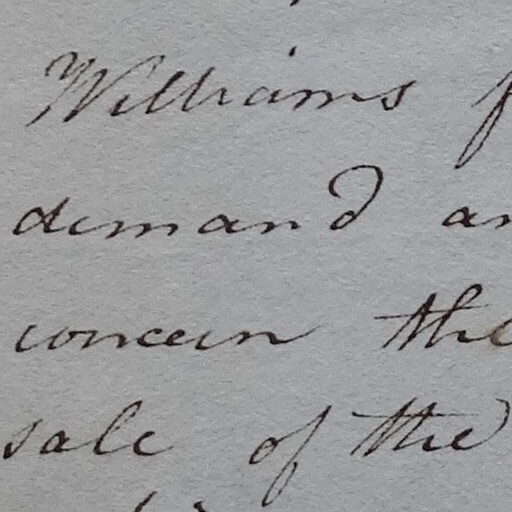 Williams
demand
concern the
sale of the